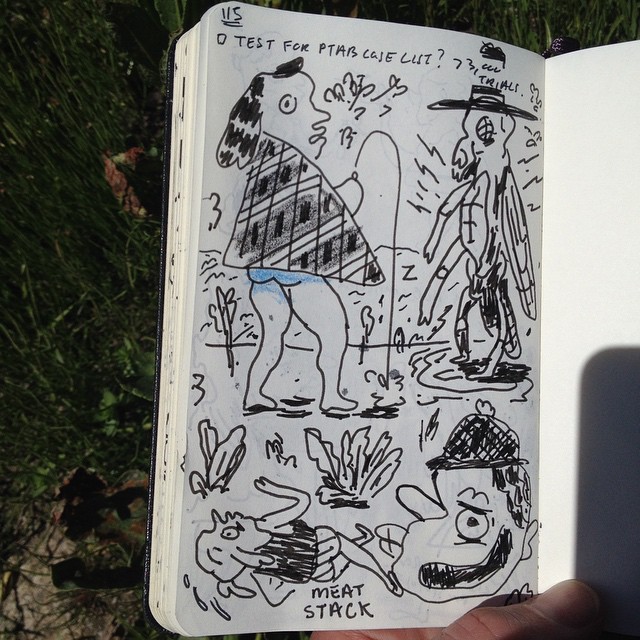 115
TEST FOR PTAB CASE LIST? > 3,000
TRIALS.
MEAT
STACK